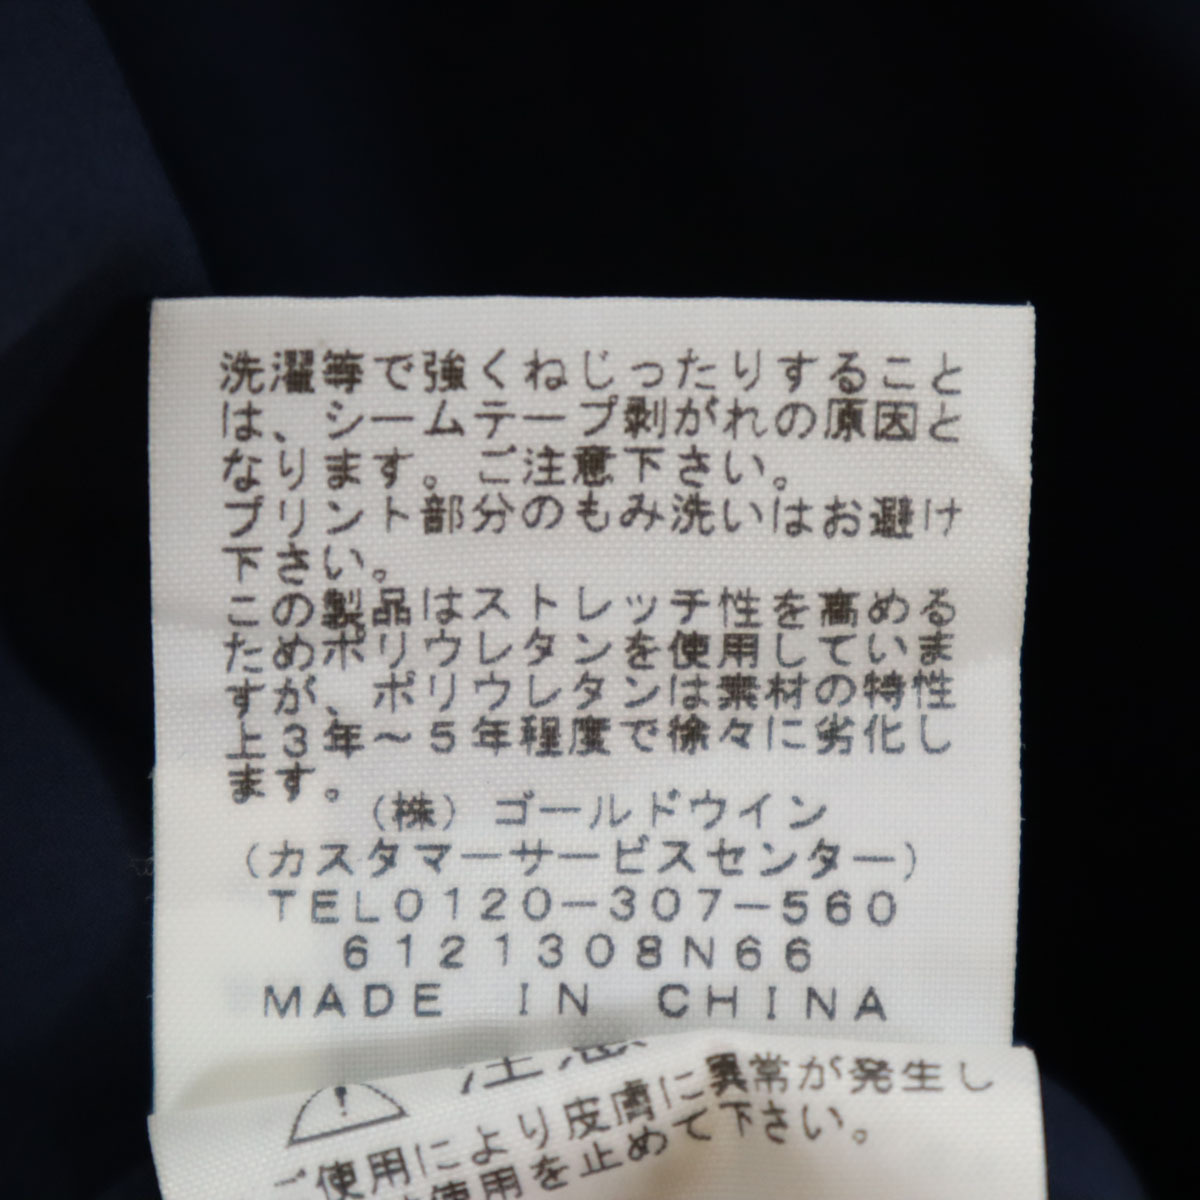 洗濯等で強くねじったりすること
は、シームテープ剥がれの原因と
なります。ご注意下さい。
プリント部分のもみ洗いはお避け
下さい。
この製品はストレッチ性を高める
ためポリウレタンを使用していま
すが、ポリウレタンは素材の特性
上3年～5年程度で徐々に劣化し
ます。
(株)ゴールドウイン
(カスタマーサービスセンター)
TEL0120-307-560
6121308N66
MADE IN CHINA
注意
ご使用により皮膚に異常が発生し
使用を止めて下さい。